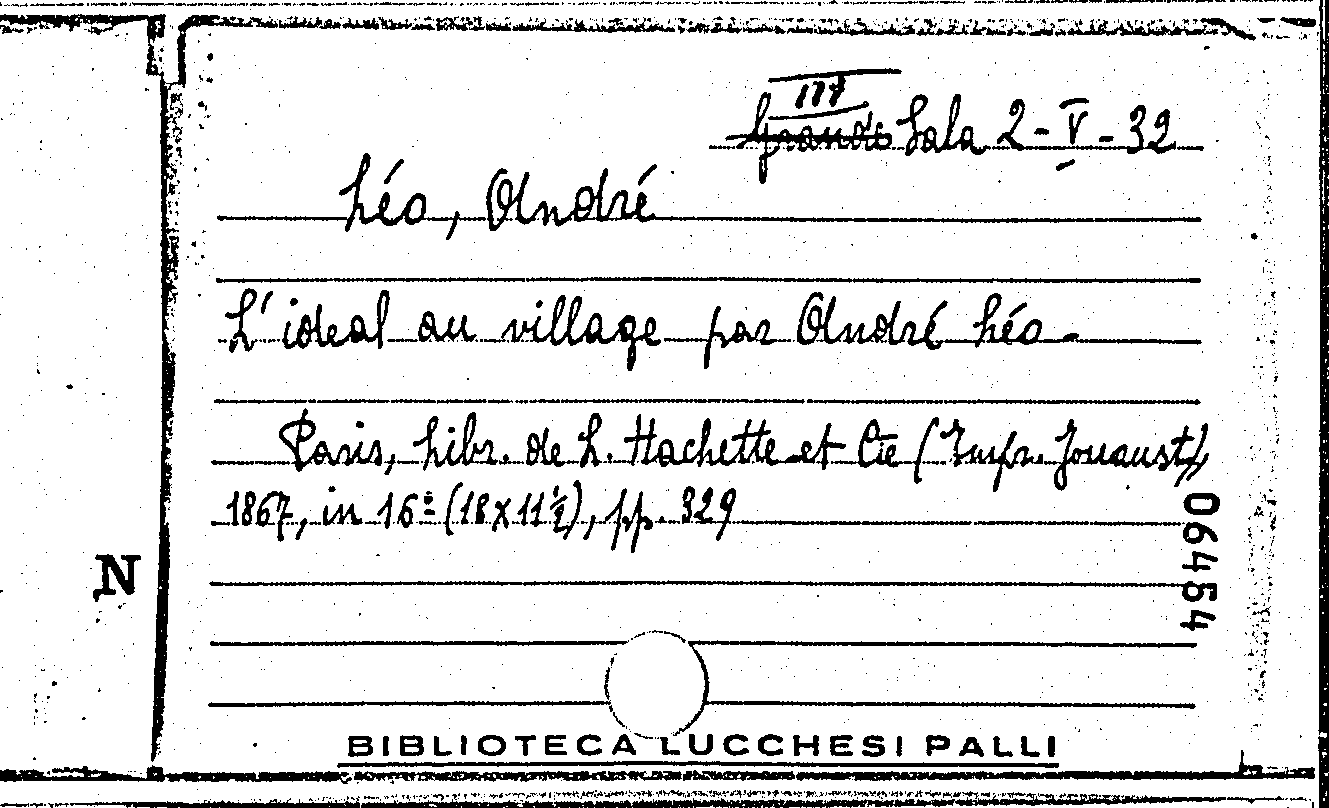 III
Grande Sala 2-V-32
Léo, André
L'ideal au village par André Léo-
Paris, Libr. de L. Hachette et Cie (Impr. Jouaust),
1867, in 16º (18x11½), pp. 329
06454
N
BIBLIOTECA LUCCHESI PALLI